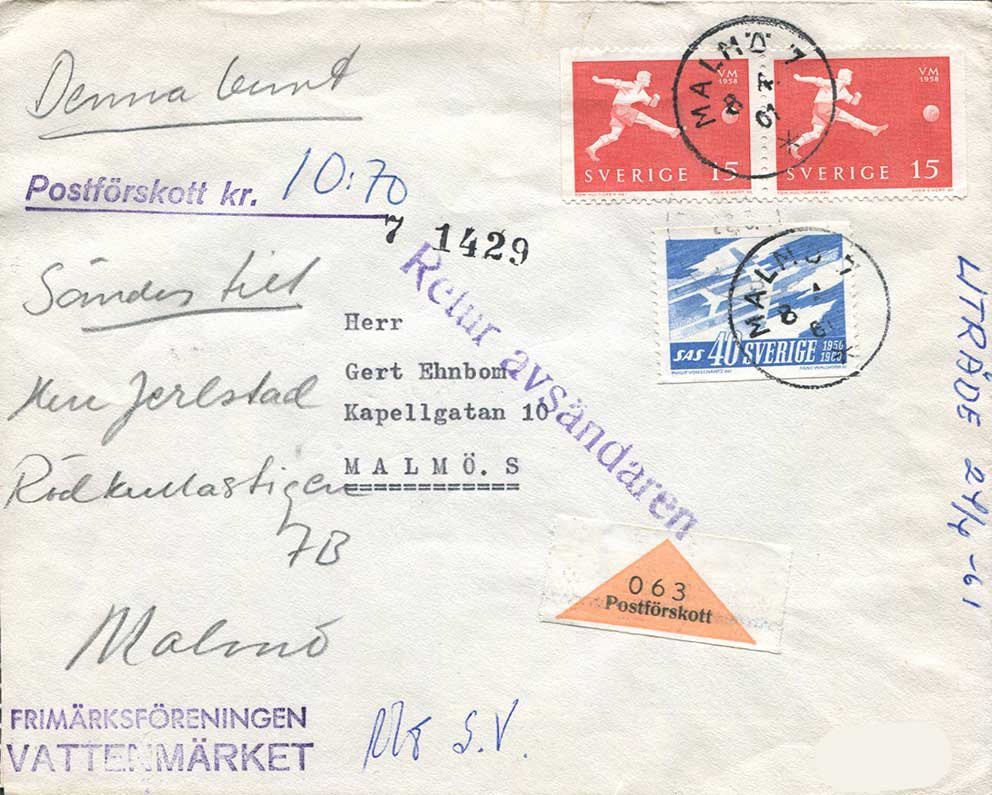 Denna
Postförskott kr. 10:70
7 1429
Sändes till
Jerlstad
Rödkullastigen
7B
Malmö
Herr
Gert Ehnbom
Kapellgatan 10
MALMÖ. S
Retur avsändaren
VM
1958
SVERIGE 15
VM
1958
SVERIGE 15
MALMÖ 1
8 4
61
SAS 40 SVERIGE 1950
MALMÖ 1
8 4
61
UTRÄDE 24/4 -61
063
Postförskott
FRIMÄRKSFÖRENINGEN
VATTENMÄRKET
S.V.